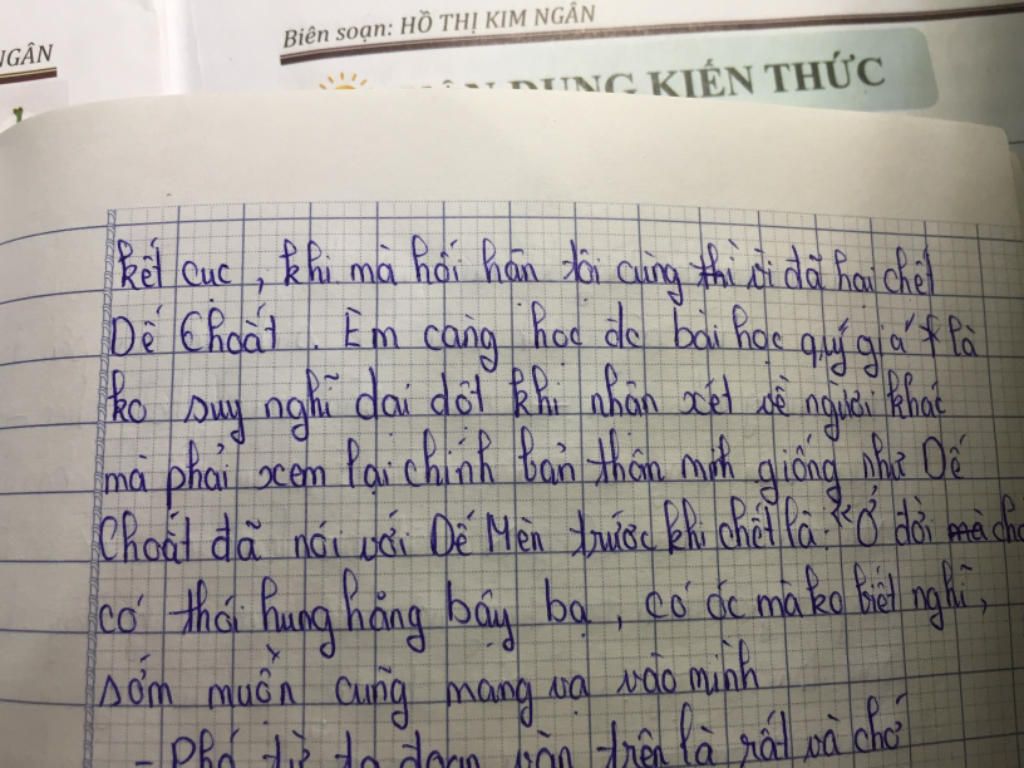 NGÂN
Biên soạn: HỒ THỊ KIM NGÂN
DỤNG KIẾN THỨC
kết cục, khi mà hối hận tôi cùng thì đã hại chết
Dế Choắt. Em càng học dc bài học quý giá là
ko suy nghĩ dại dột khi nhận xét về người khác
mà phải xem lại chính bản thân mình giống như Dế
Choắt đã nói với Dế Mèn trước khi chết là: "Ở đời mà cho
có thói hung hăng bậy bạ, có óc mà ko biết nghĩ,
sớm muộn cũng mang vạ vào mình
- Phó từ đoạn văn trên là rất và chớ